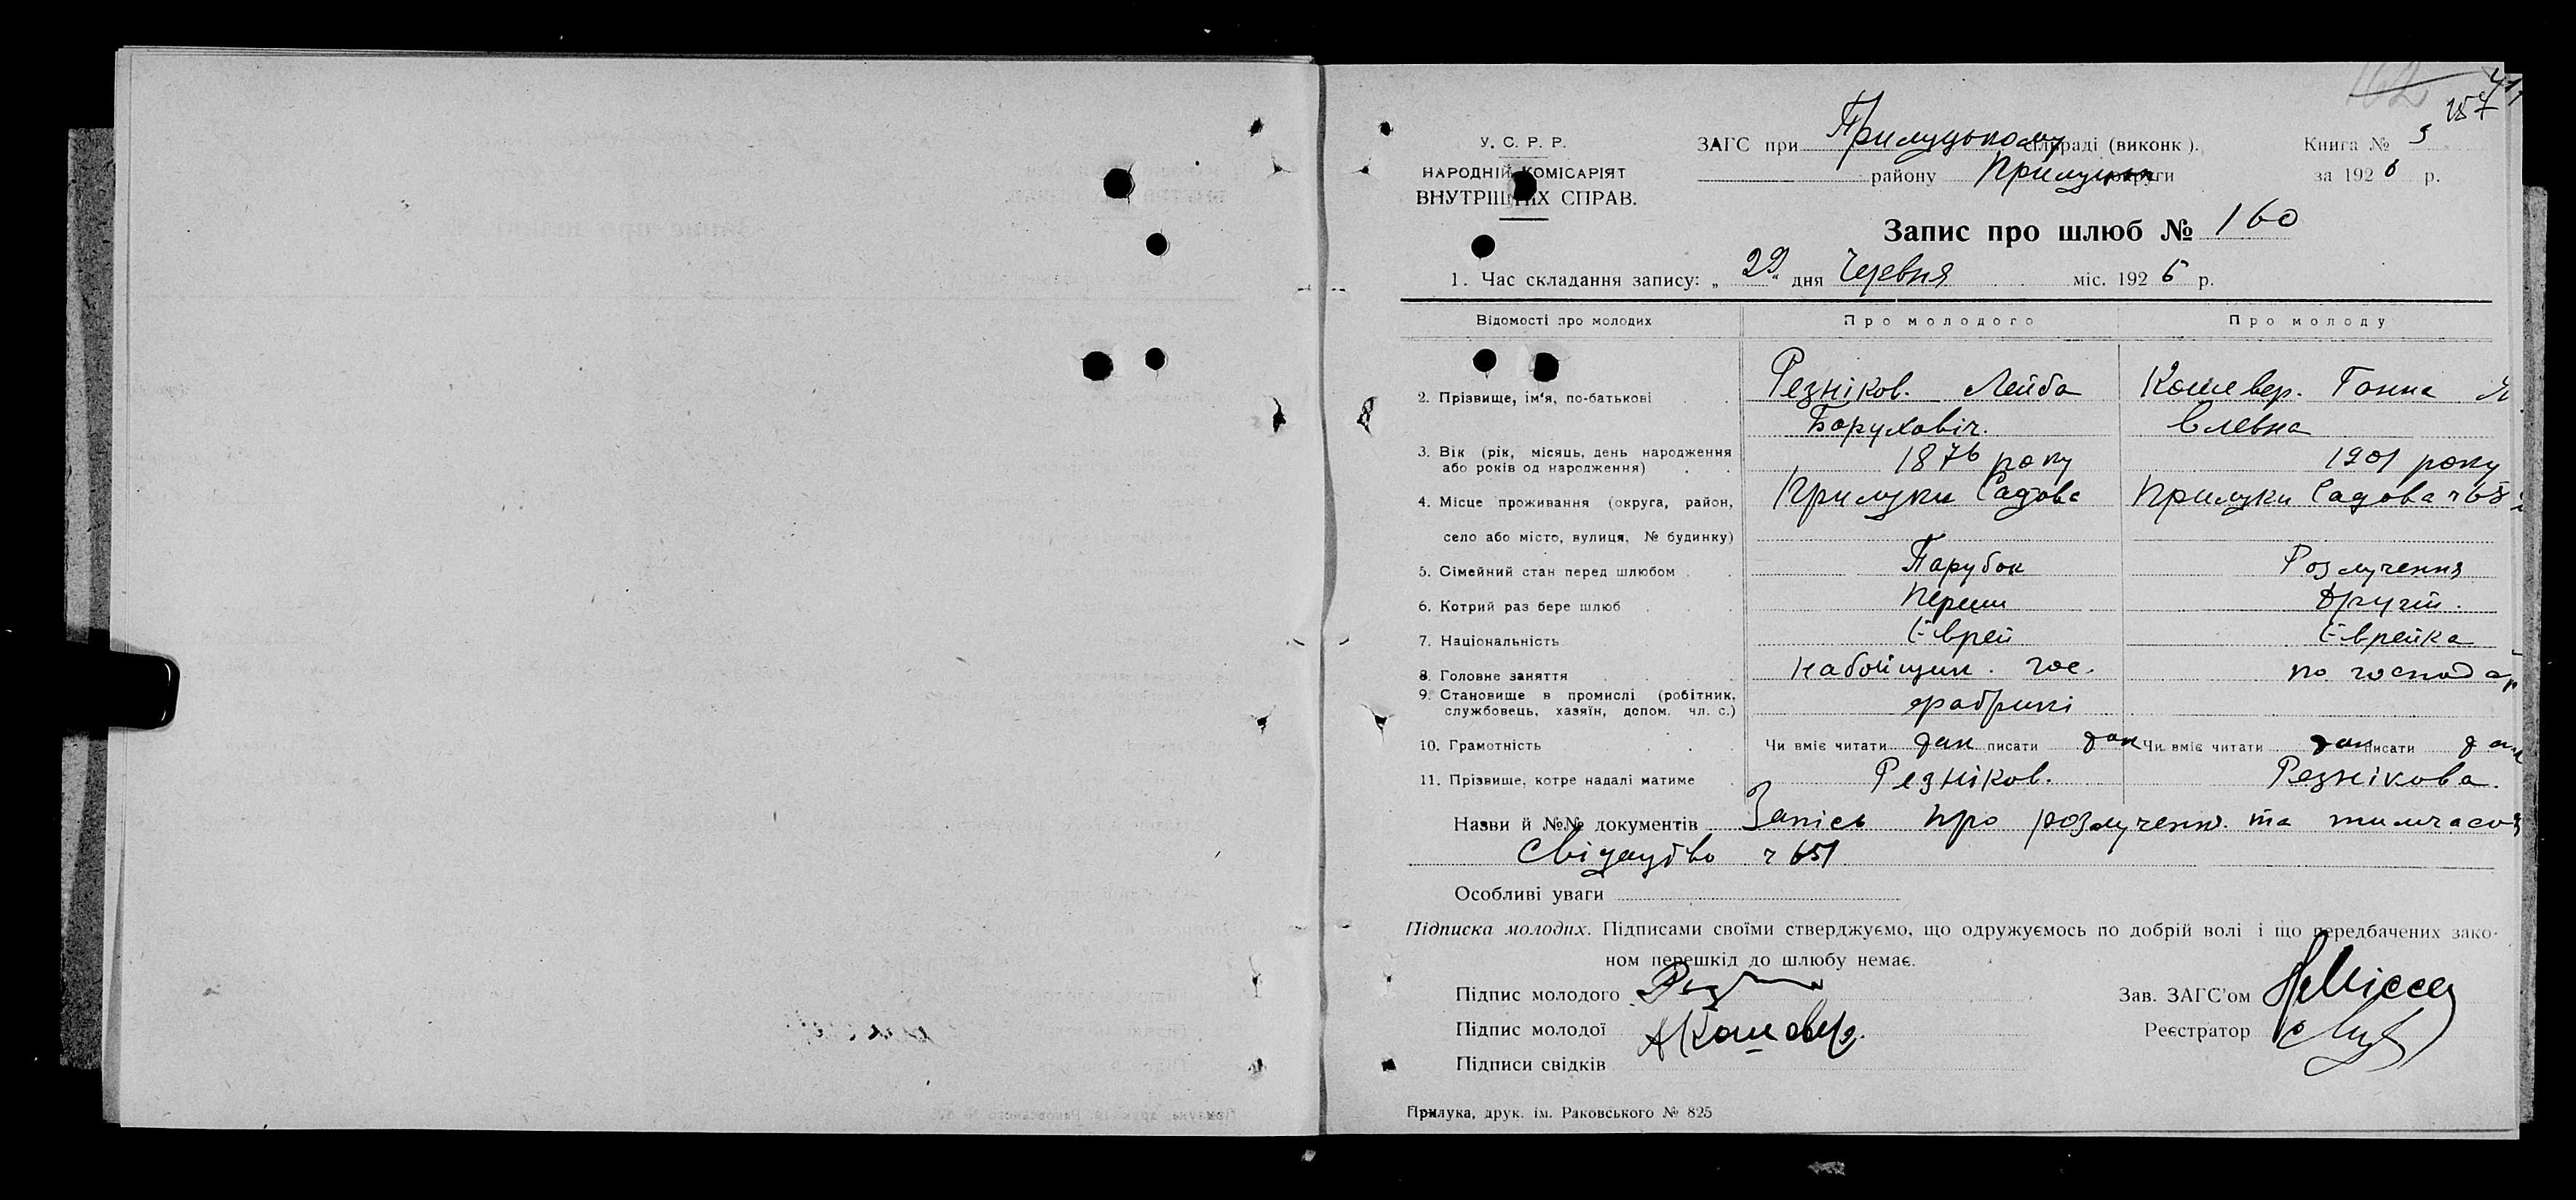 162
157
У. С. Р. Р.
НАРОДНІЙ КОМІСАРІЯТ
ВНУТРІШНІХ СПРАВ.
ЗАГС при Прилуцькому сільраді (виконк).
району Прилуцьк округи
Книга № 3
за 1926 р.
Запис про шлюб № 160
1. Час складання запису: „29" дня Червня міс. 1926 р.
Відомості про молодих Про молодого Про молоду
2. Прізвище, ім'я, по-батькові Резніков. Лейба Кошевер. Ганна
Борухович. Єлевна
3. Вік (рік, місяць, день народження
або років од народження) 1876 року 1901 року
4. Місце проживання (округа, район, Прилуки Садова Прилуки Садова
село або місто, вулиця, № будинку)
5. Сімейний стан перед шлюбом Парубок Розлучення
6. Котрий раз бере шлюб Перши другий.
7. Національність Єврей Єврейка
8. Головне заняття Набойщик. гос. по господар
9. Становище в промислі (робітник,
службовець, хазяїн, допом. чл. с.) фабрикі
10. Грамотність Чи вміє читати так писати так Чи вміє читати так писати так
11. Прізвище, котре надалі матиме Резніков. Резнікова.
Назви й №№ документів Запісь про розлученню. та тимчасов
Свідоцтво ч 651
Особливі уваги
Підписка молодих. Підписами своїми стверджуємо, що одружуємось по добрій волі і що передбачених зако-
ном перешкід до шлюбу немає.
Підпис молодого Рез
Зав. ЗАГС'ом
Підпис молодої АКошевер.
Реєстратор
Підписи свідків
Прилука, друк. ім. Раковського № 825